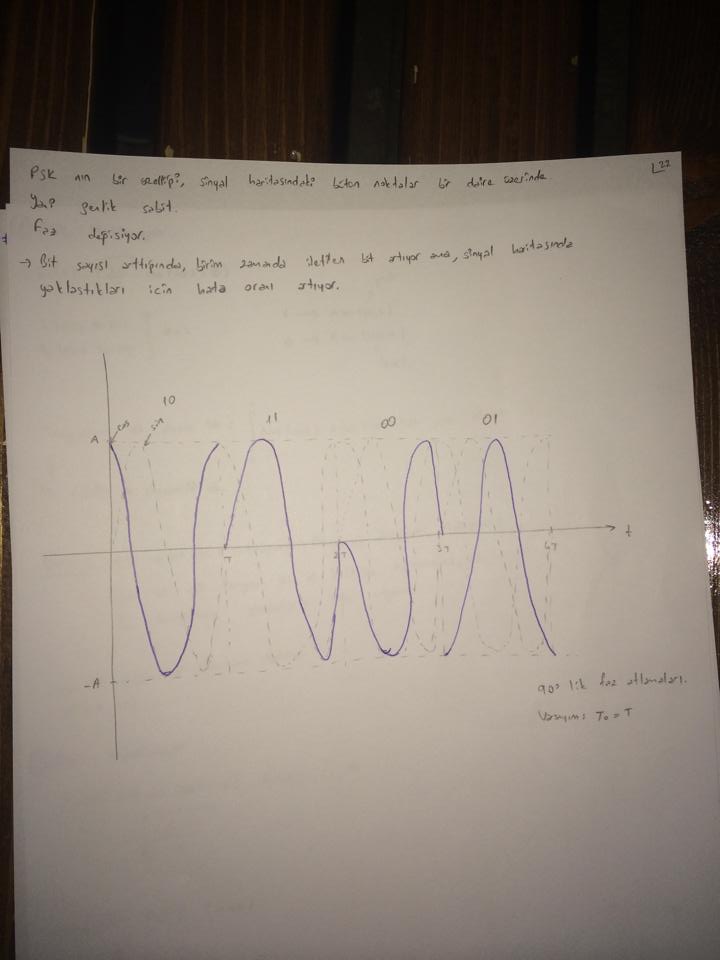 22
PSK nın bir özelliği, sinyal haritasındaki bütün noktalar bir daire üzerinde.
Yani genlik sabit.
Faz değişiyor.
→ Bit sayısı arttığında, birim zamanda iletilen bit artıyor ama, sinyal haritasında
yaklaştıkları için hata oranı artıyor.
10
cos sin
11
00
01
A
t
T
2T
3T
4T
-A
90° lik faz atlamaları.
Varsayım: T₀ = T